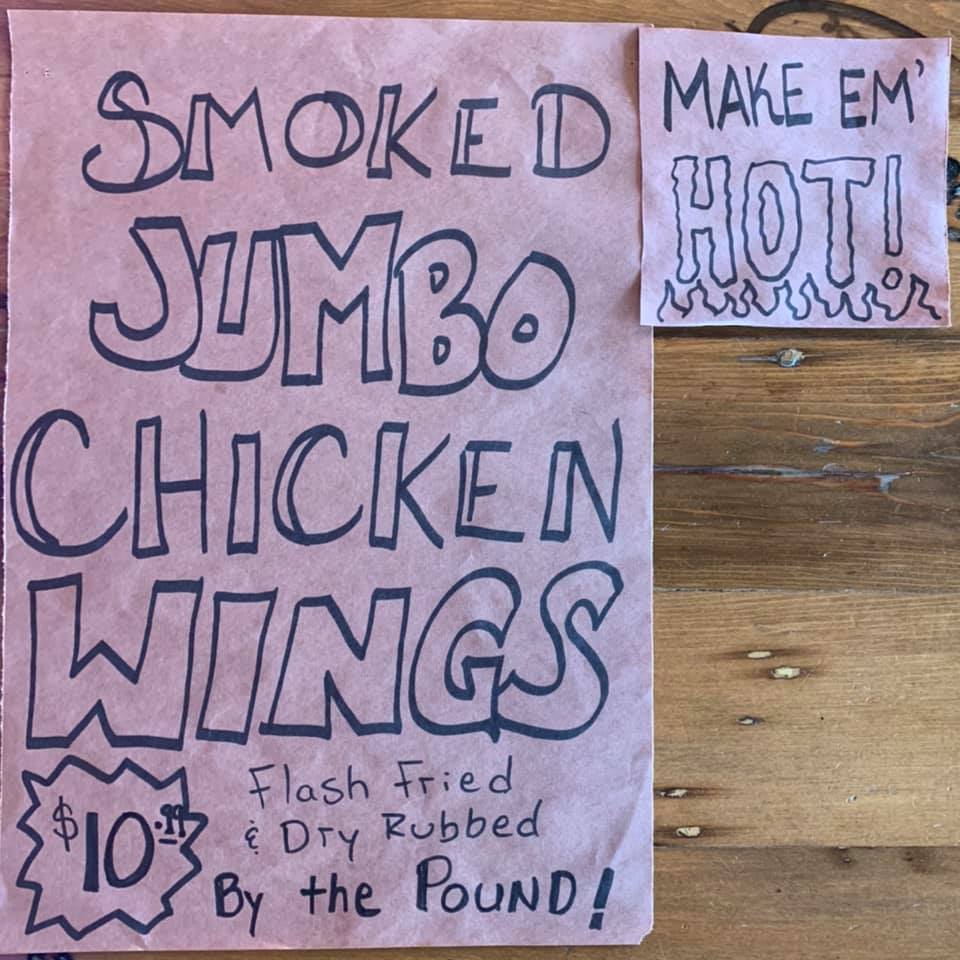 SMOKED
JUMBO
CHICKEN
WINGS
$10.99
Flash Fried
& Dry Rubbed
By the POUND!
MAKE EM'
HOT!